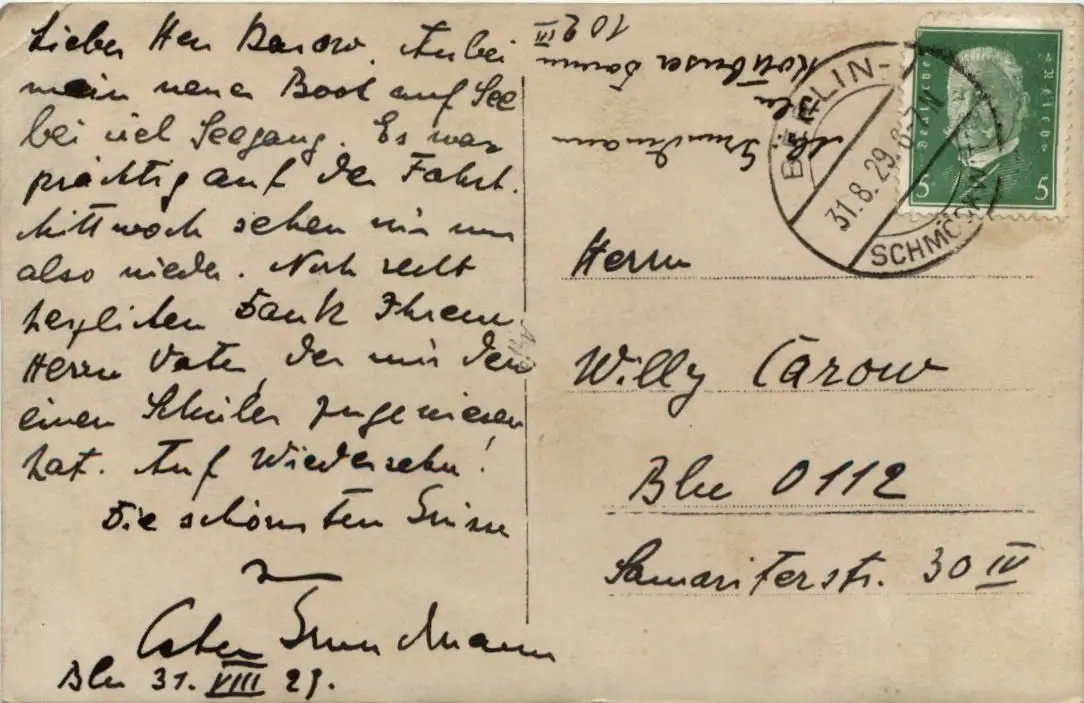 Lieber Herr Carow. Anbei
mein neues Boot auf See
bei viel Seegang. Es war
prächtig auf der Fahrt.
Mittwoch sehen wir uns
also wieder. Noch recht
herzlichen Dank Ihrem
Herrn Vater, der mir den
einen Schüler zugewiesen
hat. Auf Wiedersehn!
Die schönsten Grüsse
Grundmann
Bln 31. VIII 29.
Grundmann
Bln
Kottbuser Damm
102 III
BERLIN-
31.8.29.6-7N
SCHMÖCKWITZ
Deutsches Reich
5 5
Herrn
Willy Carow
Bln O112
Samariterstr. 30 IV